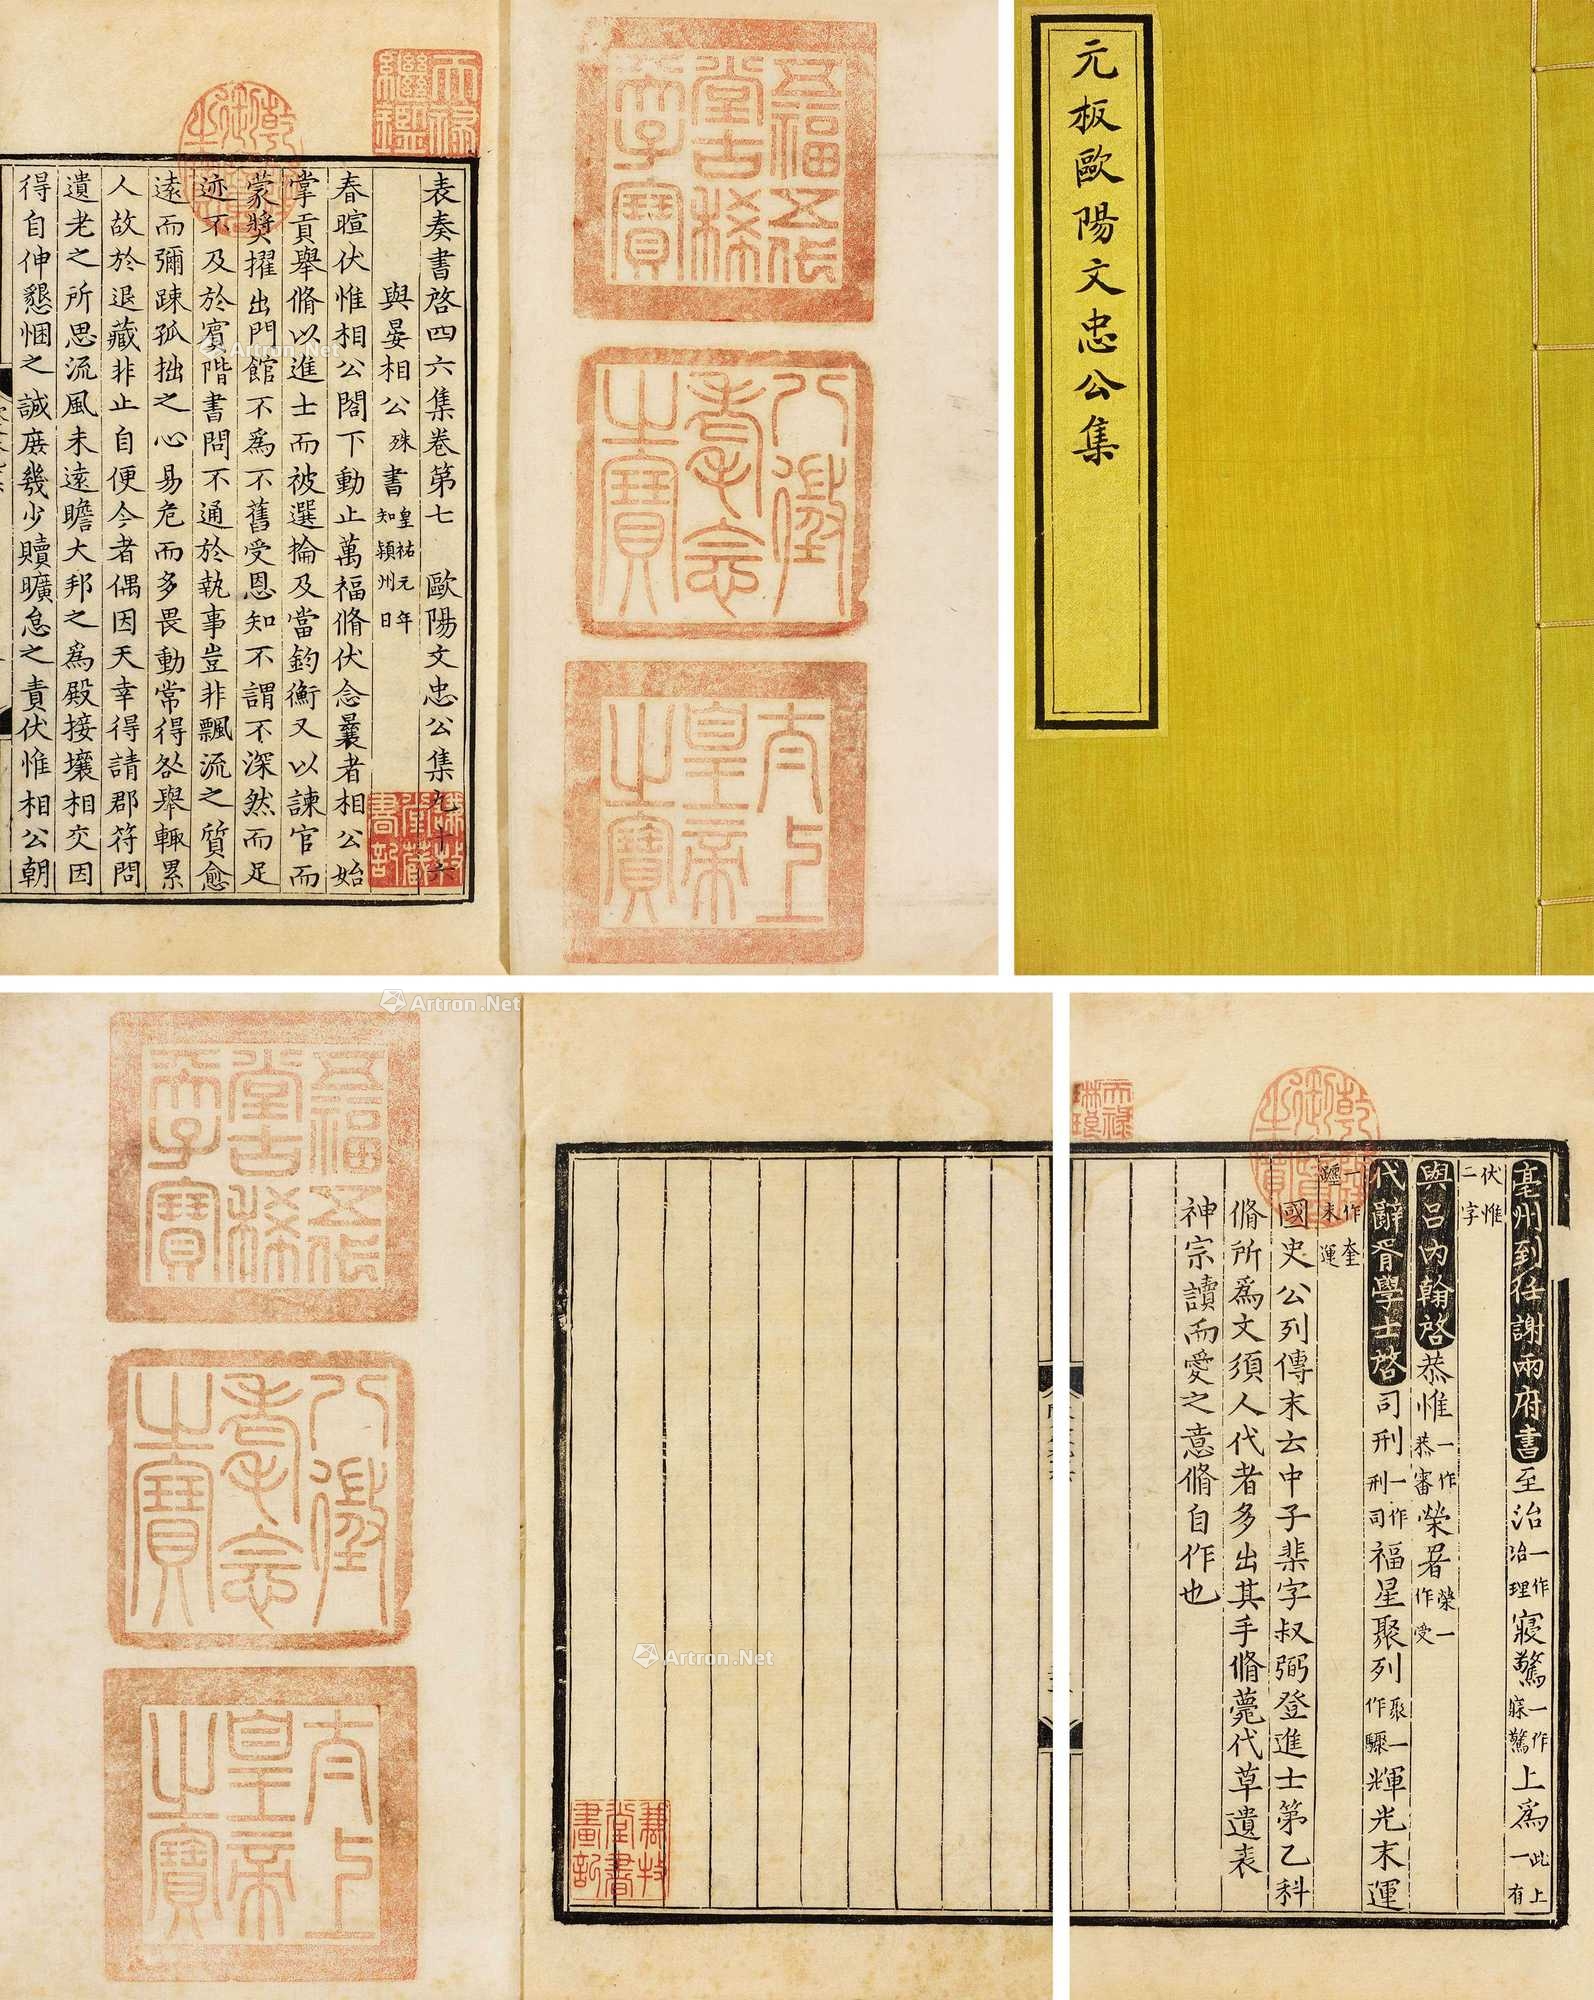 元板歐陽文忠公集
五福五代
堂古稀
天子寶
八徵
耄念
之寶
太上
皇帝
之寶
天祿
繼鑑
乾隆
御覽
之寶
表奏書啓四六集卷第七　歐陽文忠公集九十六
與晏相公殊書皇祐元年
知潁州日
春暄伏惟相公閤下動止萬福脩伏念曩者相公始
掌貢舉脩以進士而被選掄及當鈞衡又以諫官而
蒙奬擢出門館不爲不舊受恩知不謂不深然而足
迹不及於賓階書問不通於執事豈非飄流之質愈
遠而彌踈孤拙之心易危而多畏動常得咎舉輒累
人故於退藏非止自便今者偶因天幸得請郡符問
遺老之所思流風未遠瞻大邦之爲殿接壤相交因
得自伸懇悃之誠庶幾少贖曠怠之責伏惟相公朝
謙牧
堂藏
書記
Artron.Net
天祿
琳琅
乾隆
御覽
之寶
亳州到任謝兩府書至治一作
治理寢驚一作
寐驚上爲此上
一有
伏惟
二字
與呂内翰啓恭惟一作
恭審榮署榮一
作受
代辭胥學士啓司刑一作
刑司福星聚列聚一
作驟輝光末運
一作奎
躔末運
國史公列傳末云中子棐字叔弼登進士第乙科
脩所爲文須人代者多出其手脩薨代草遺表
神宗讀而愛之意脩自作也
兼牧
堂書
畫記
Artron.Net
五福五代
堂古稀
天子寶
八徵
耄念
之寶
太上
皇帝
之寶
Artron.Net